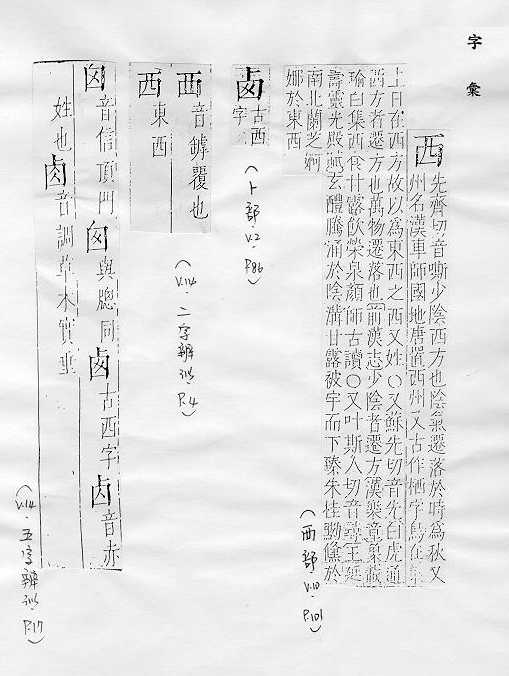 字彙
西
先齊切音嘶少陰西方也陰氣遷落於時為秋又
州名漢車師國地唐置西州又古作栖字鳥在巢
上日在西方故以為東西之西又姓○又蘇先切音先白虎通
西方者遷方也萬物遷落也前漢志少陰者遷方漢樂章象載
瑜白集西食甘露飲榮泉顏師古讀○又叶斯人切音尋王延
壽靈光殿賦玄醴騰涌於陰溝甘露被宇而下臻朱桂黝儵於
南北蘭芝婀
娜於東西
(西部 V.10 P.101)
卥古西
字
(卜部 V.2 P.86)
襾音罅覆也
西東西
(V.14 二字辨似 P.4)
囟音信頂門 囪與牕同 卥古西字 卤音赤
姓也 鹵音調草木實垂
(V.14 五字辨似 P.17)